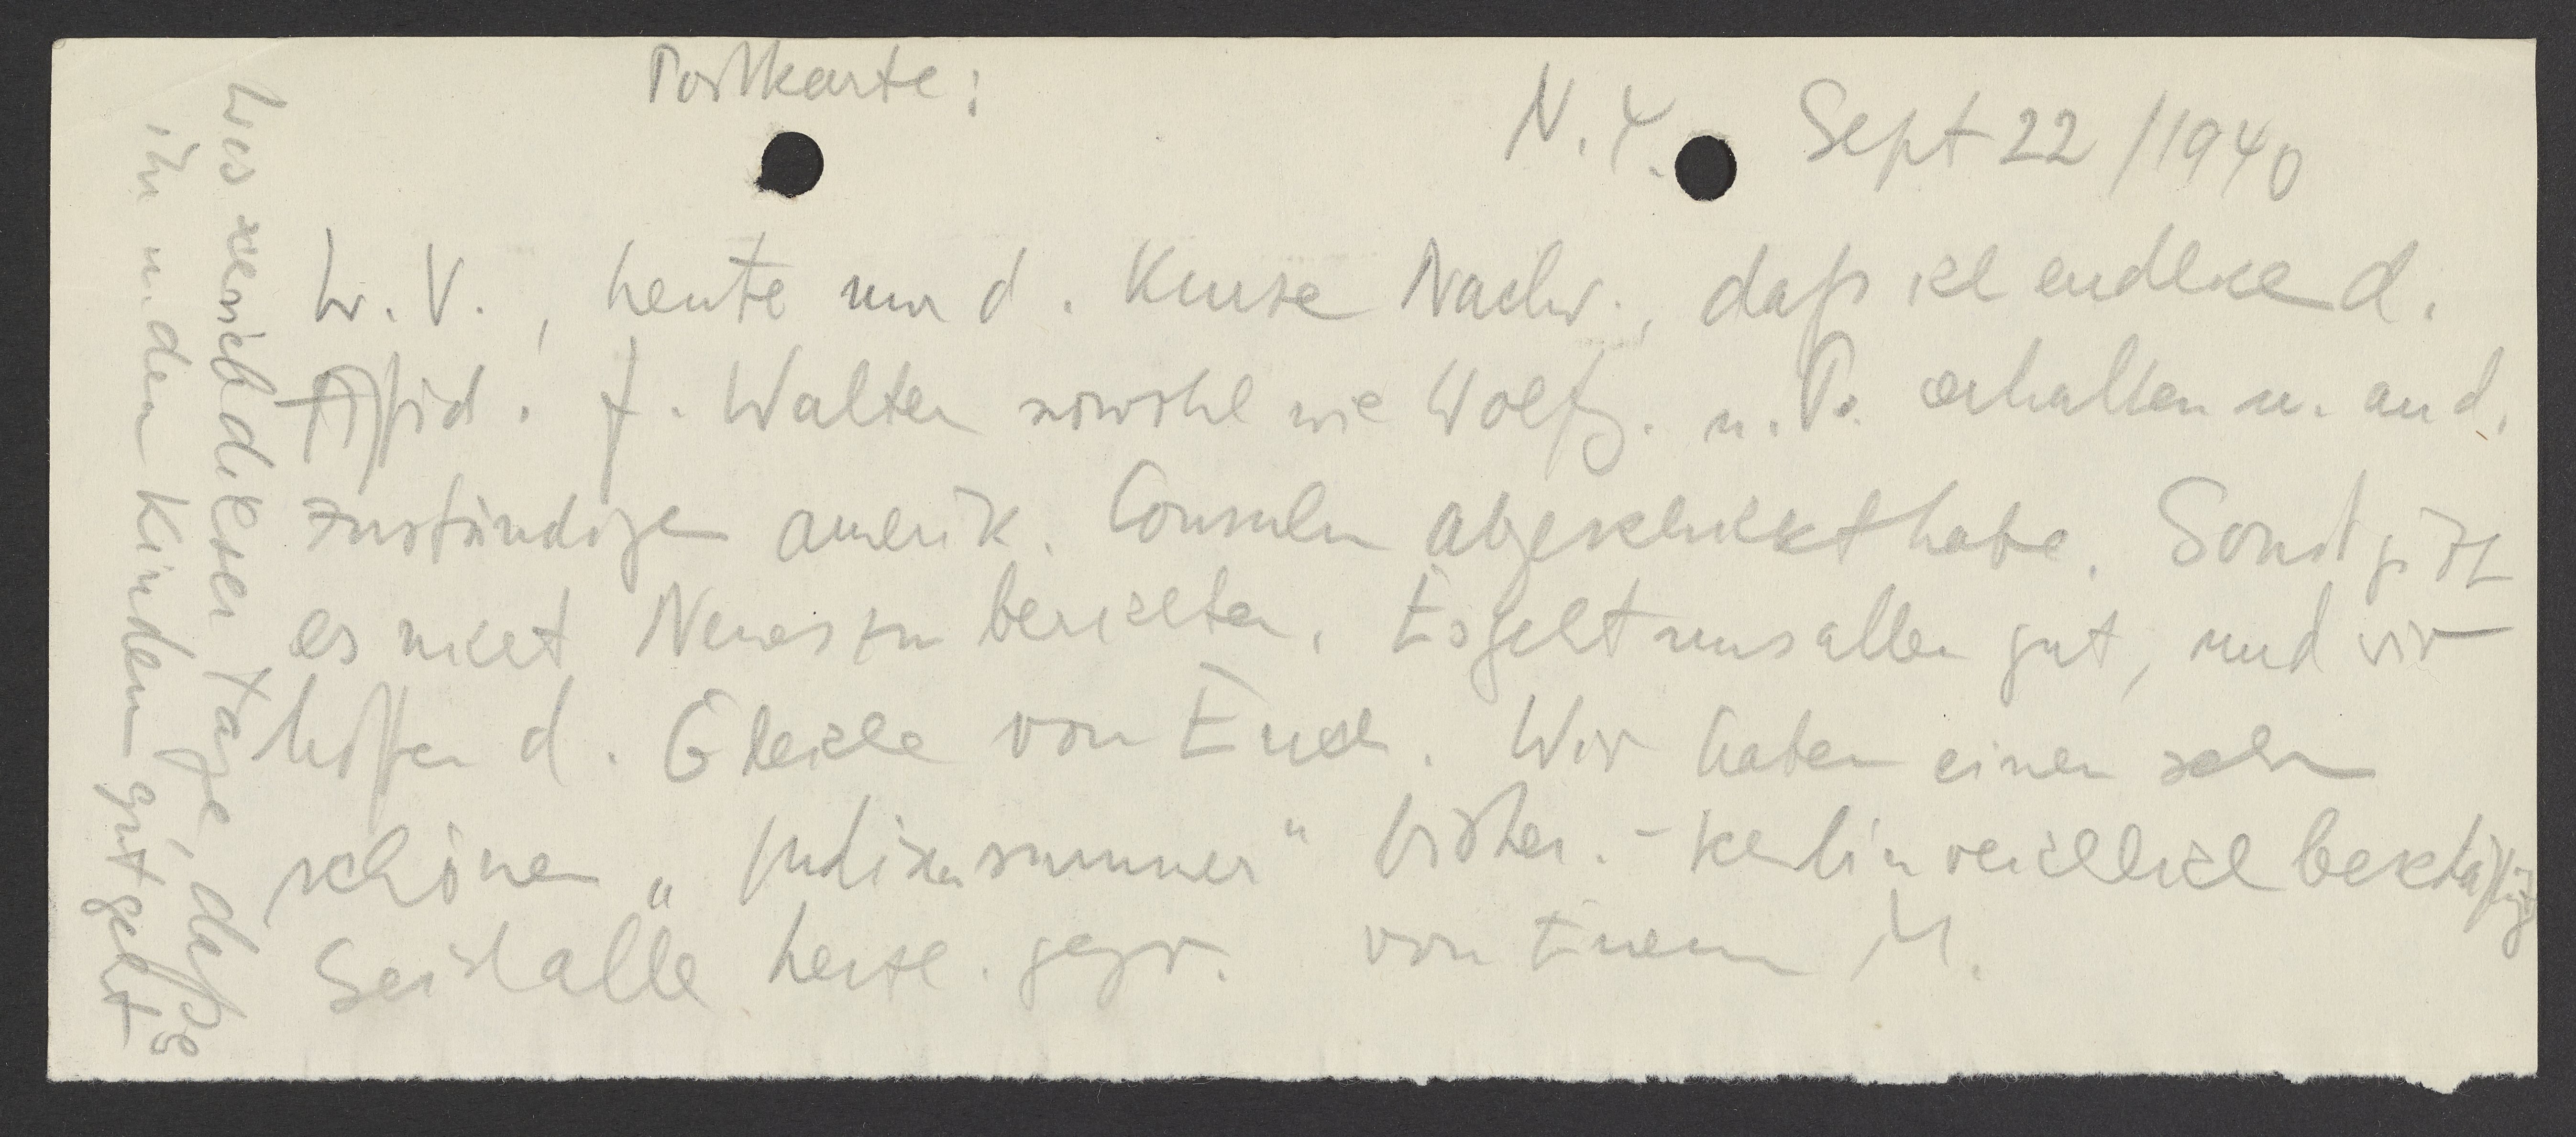 Postkarte:
N.Y. Sept 22/1940
L. V., heute nur d. kurze Nachr., daß ich endlich d.
Affid. f. Walter sowohl wie Wolfg. u. P. erhalten u. an d.
zuständigen amerik. Consuln abgeschickt habe. Sonst gibt
es nicht Neues zu berichten. Es geht uns allen gut, und wir
hoffen d. Gleiche von Euch. Wir haben einen sehr
schönen „Indian summer" bisher. - bin reichlich beschäftigt
Seid alle herzl. gegr. von Eurem M.
Lies schrieb dieser Tage, daß es
ihr u. den Kindern gut geht